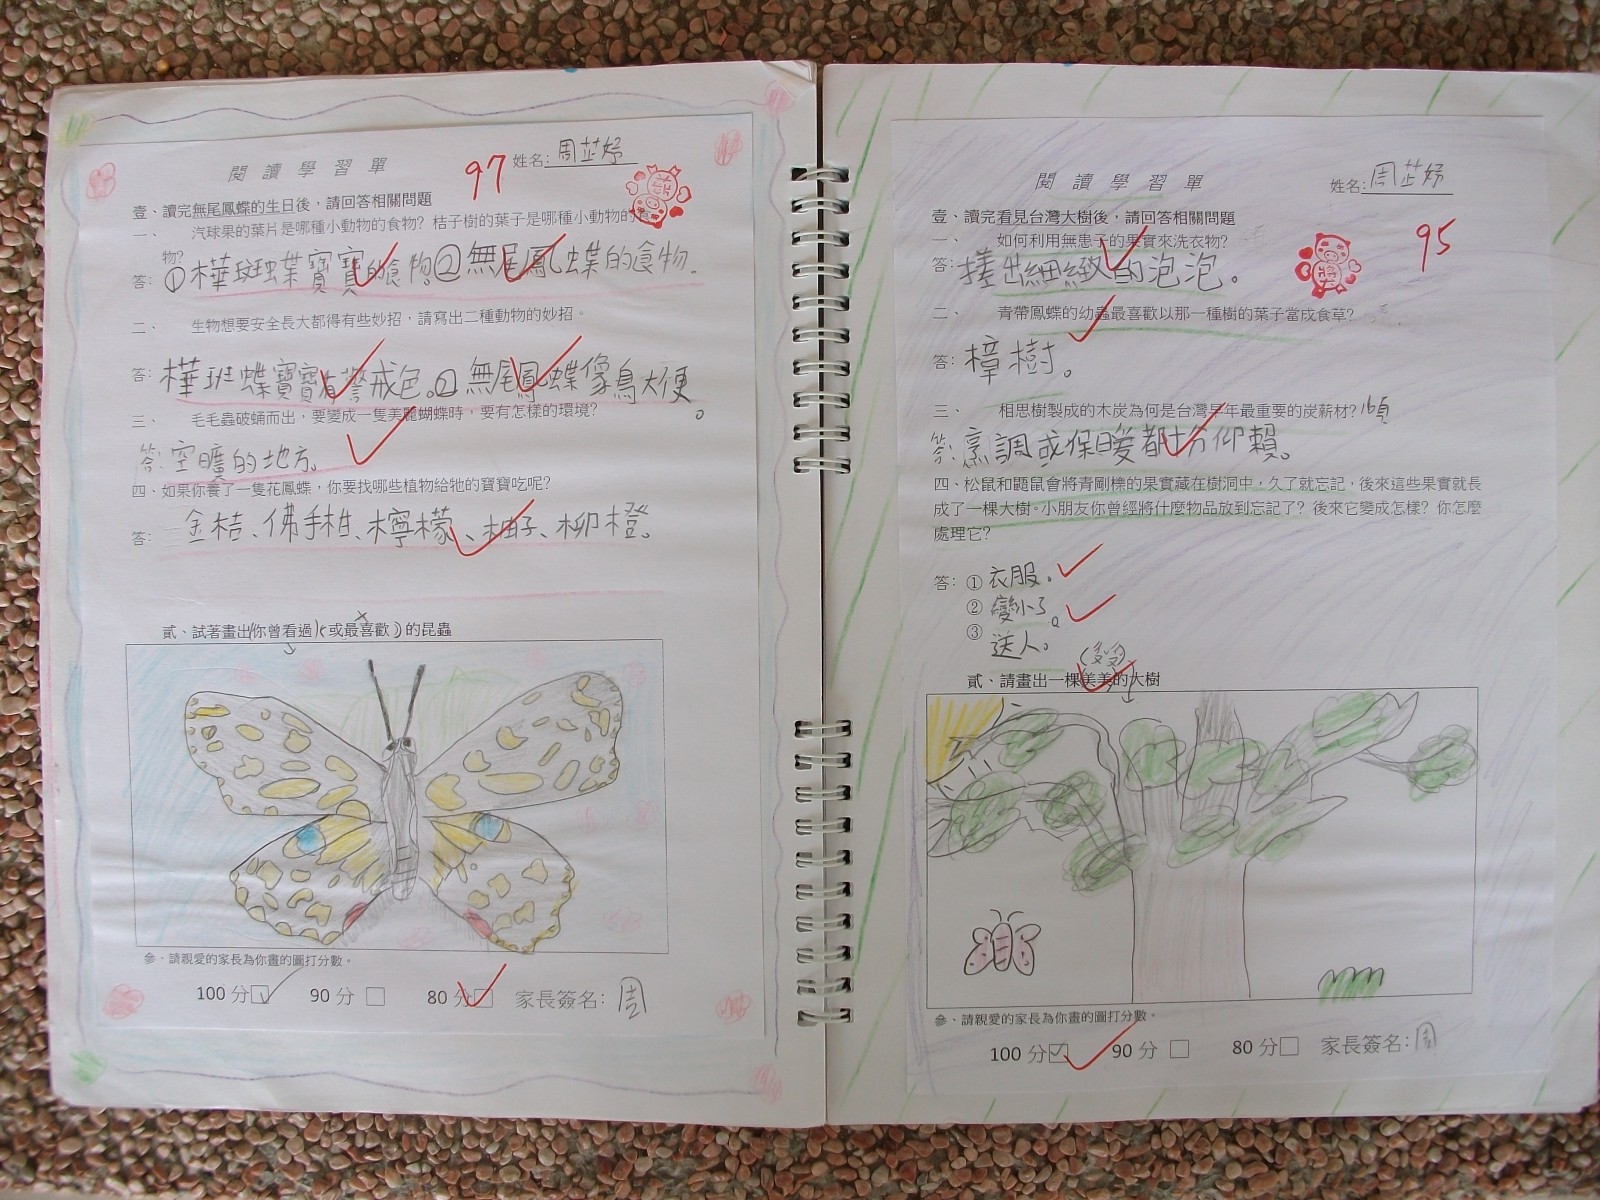 閱讀學習單
97
姓名:周芷妤
壹、讀完無尾鳳蝶的生日後，請回答相關問題
一、 汽球果的葉片是哪種小動物的食物? 桔子樹的葉子是哪種小動物的食
物?
答: ①樺斑蝶寶寶的食物。②無尾鳳蝶的食物.
二、 生物想要安全長大都得有些妙招，請寫出二種動物的妙招。
答: 樺班蝶寶寶有警戒色。② 無尾鳳蝶像鳥大便。
三、 毛毛蟲破蛹而出，要變成一隻美麗蝴蝶時，要有怎樣的環境?
答: 空曠的地方。
四、如果你養了一隻花鳳蝶，你要找哪些植物給牠的寶寶吃呢?
答: 金桔、佛手柑、檸檬、柚子、柳橙。
貳、試著畫出(你曾看過)(或最喜歡)的昆蟲
參、請親愛的家長為你畫的圖打分數。
100 分 90 分 80 分 家長簽名: 周
閱讀學習單
姓名:周芷妤
95
壹、讀完看見台灣大樹後，請回答相關問題
一、 如何利用無患子的果實來洗衣物?
答: 搓出細緻的泡泡。
二、 青帶鳳蝶的幼蟲最喜歡以那一種樹的葉子當成食草?
答: 樟樹。
三、 相思樹製成的木炭為何是台灣早年最重要的炭薪材?
答: 烹調或保暖都十分仰賴。
四、松鼠和鼯鼠會將青剛櫟的果實藏在樹洞中，久了就忘記，後來這些果實就長
成了一棵大樹。小朋友你曾經將什麼物品放到忘記了? 後來它變成怎樣? 你怎麼
處理它?
答: ① 衣服。
② 變小了。
③ 送人。
貳、請畫出一棵美美的大樹
參、請親愛的家長為你畫的圖打分數。
100 分 90 分 80 分 家長簽名: 周